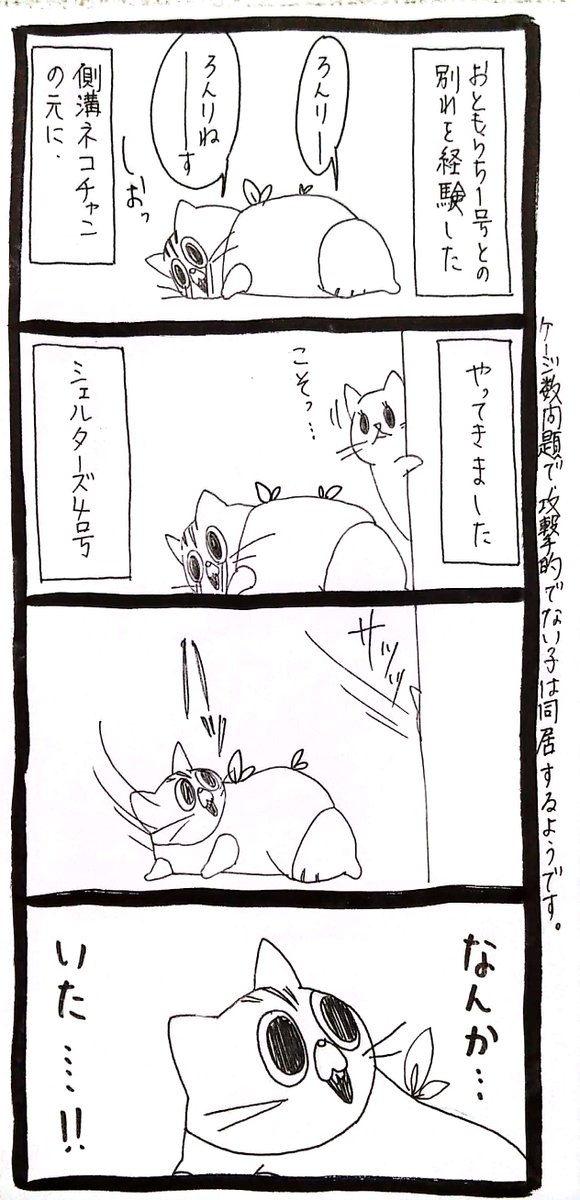 おともらち1号との
別れを経験した
ろんりー
ろんりねーーす
しおっ
側溝ネコチャン
の元に、
やってきました
こそっ…
シェルターズ4号
サッッ
なんか…
いた……!!
ケージ数問題で、攻撃的でない子は同居するようです。